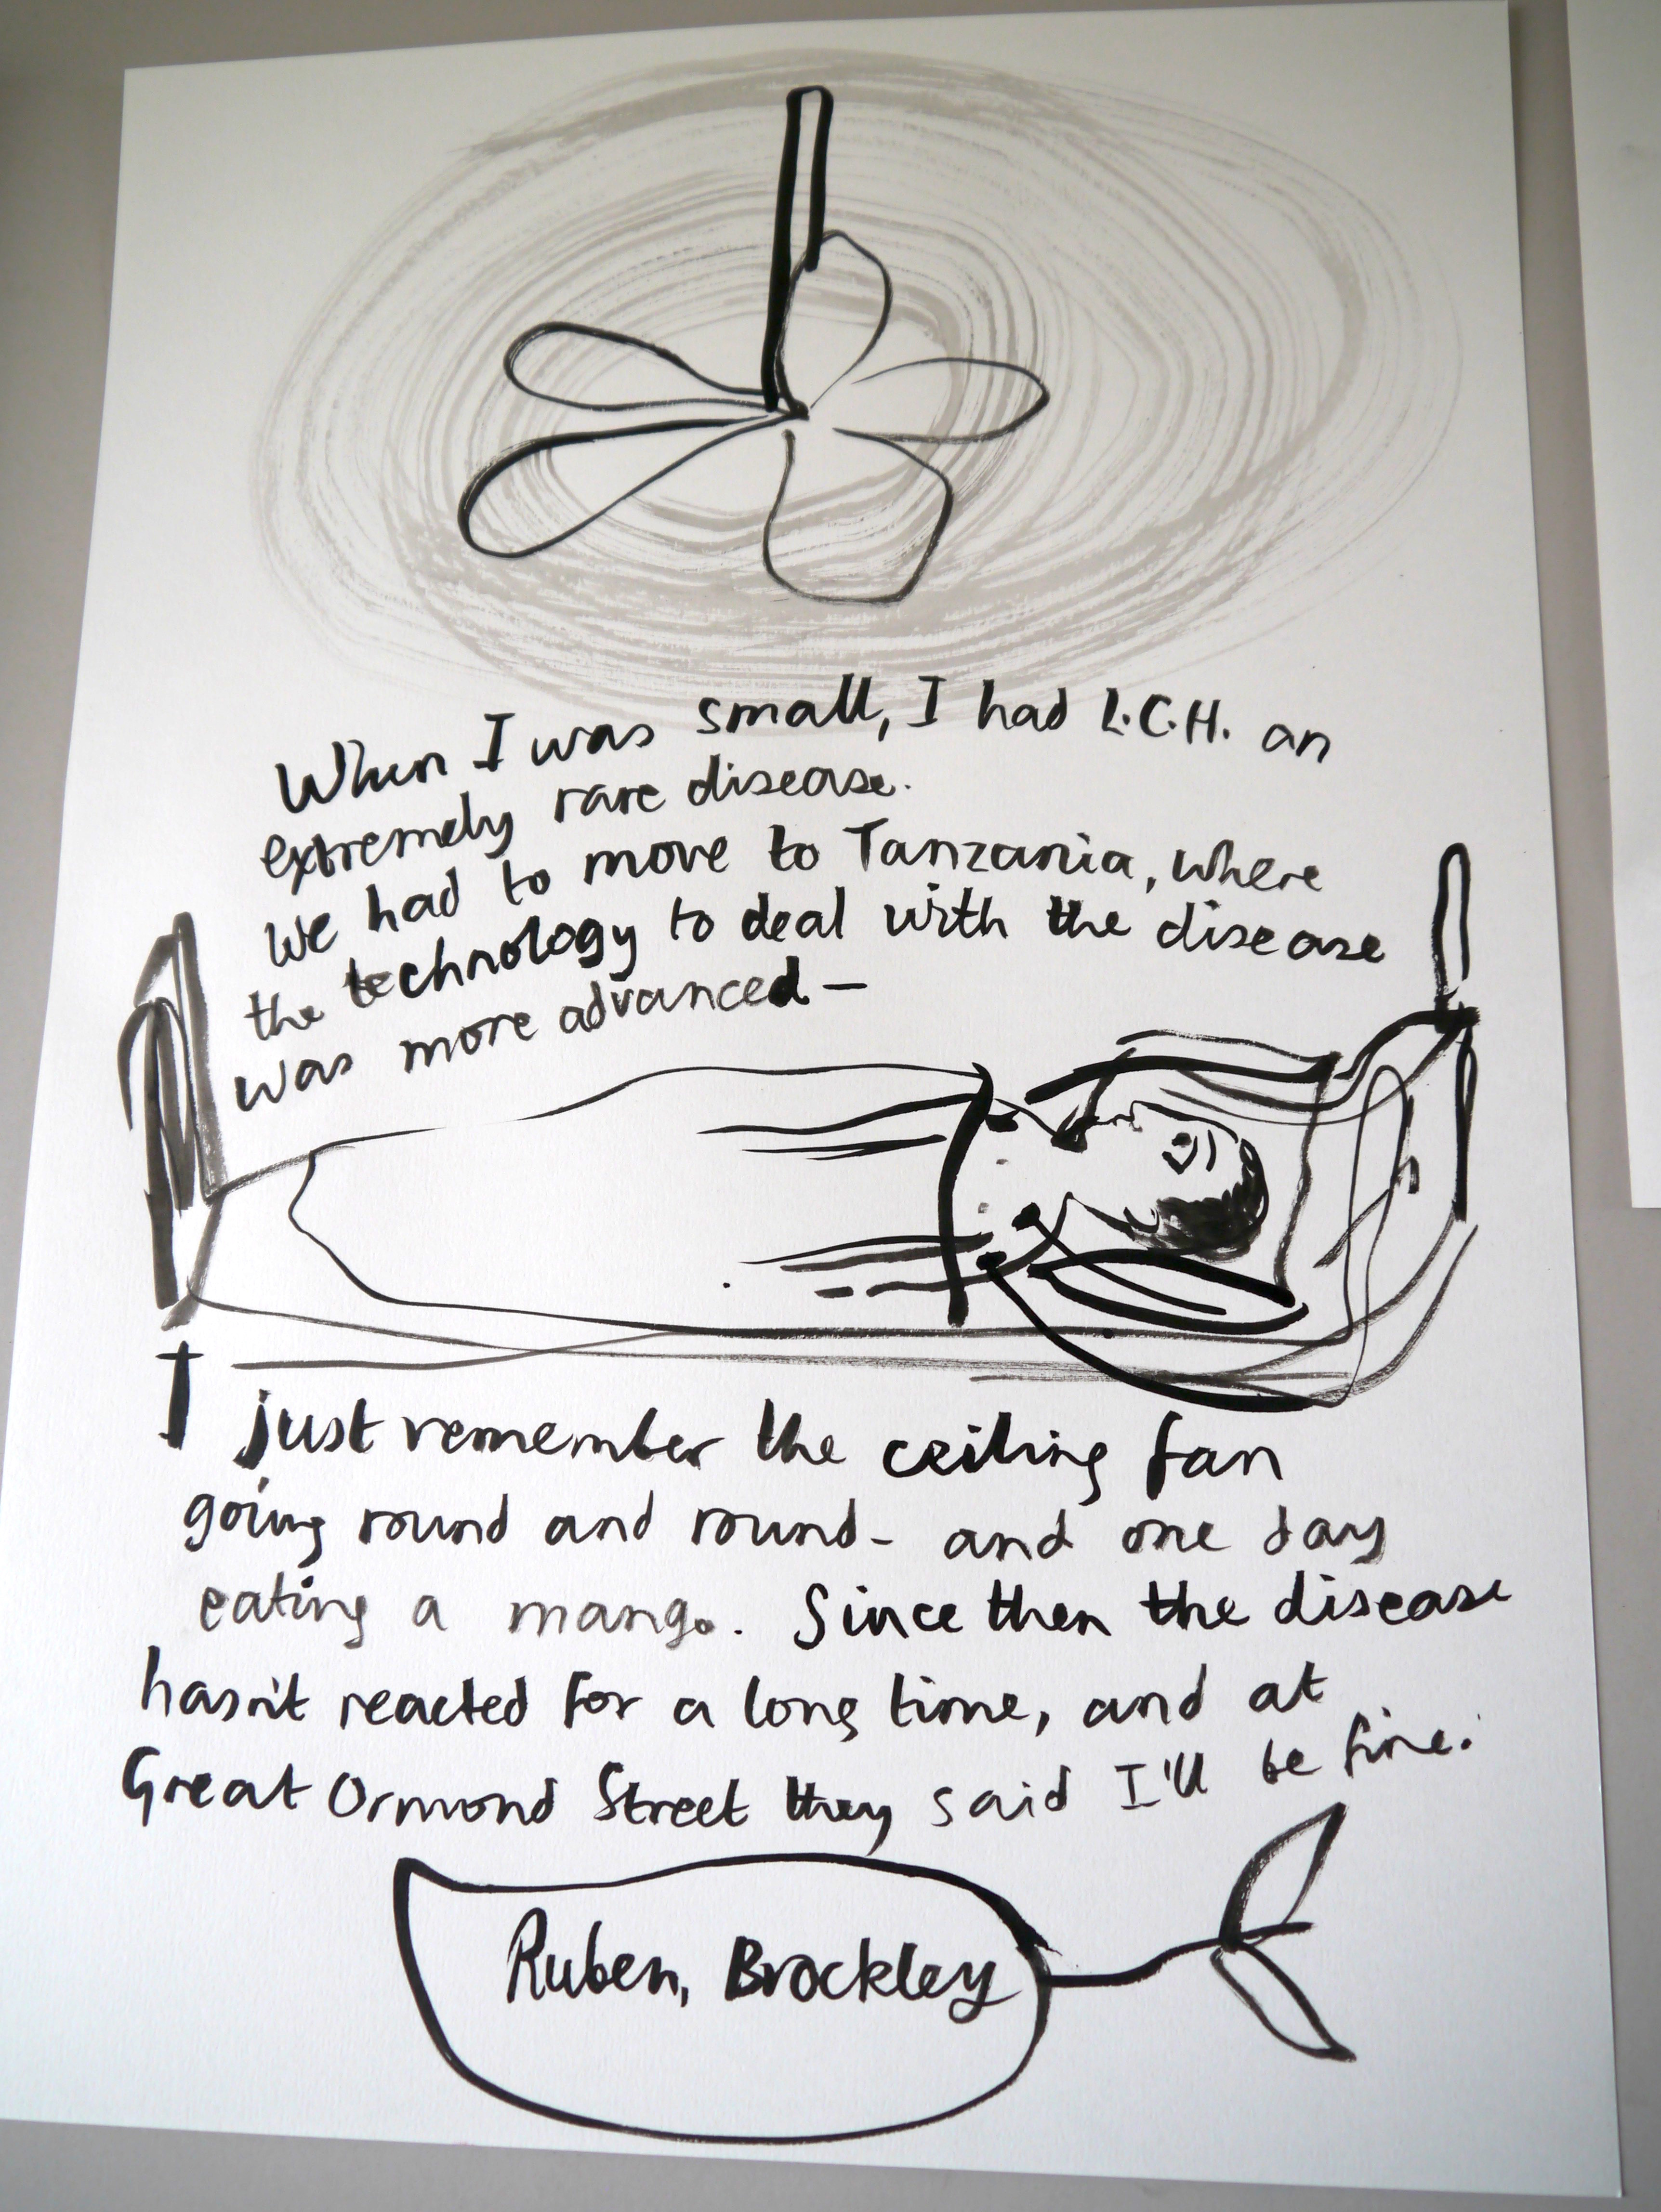 When I was small, I had L.C.H. an
extremely rare disease.
We had to move to Tanzania, where
the technology to deal with the disease
was more advanced—
I just remember the ceiling fan
going round and round- and one day
eating a mango. Since then the disease
hasn't reacted for a long time, and at
Great Ormond Street they said I'll be fine.
Ruben, Brockley